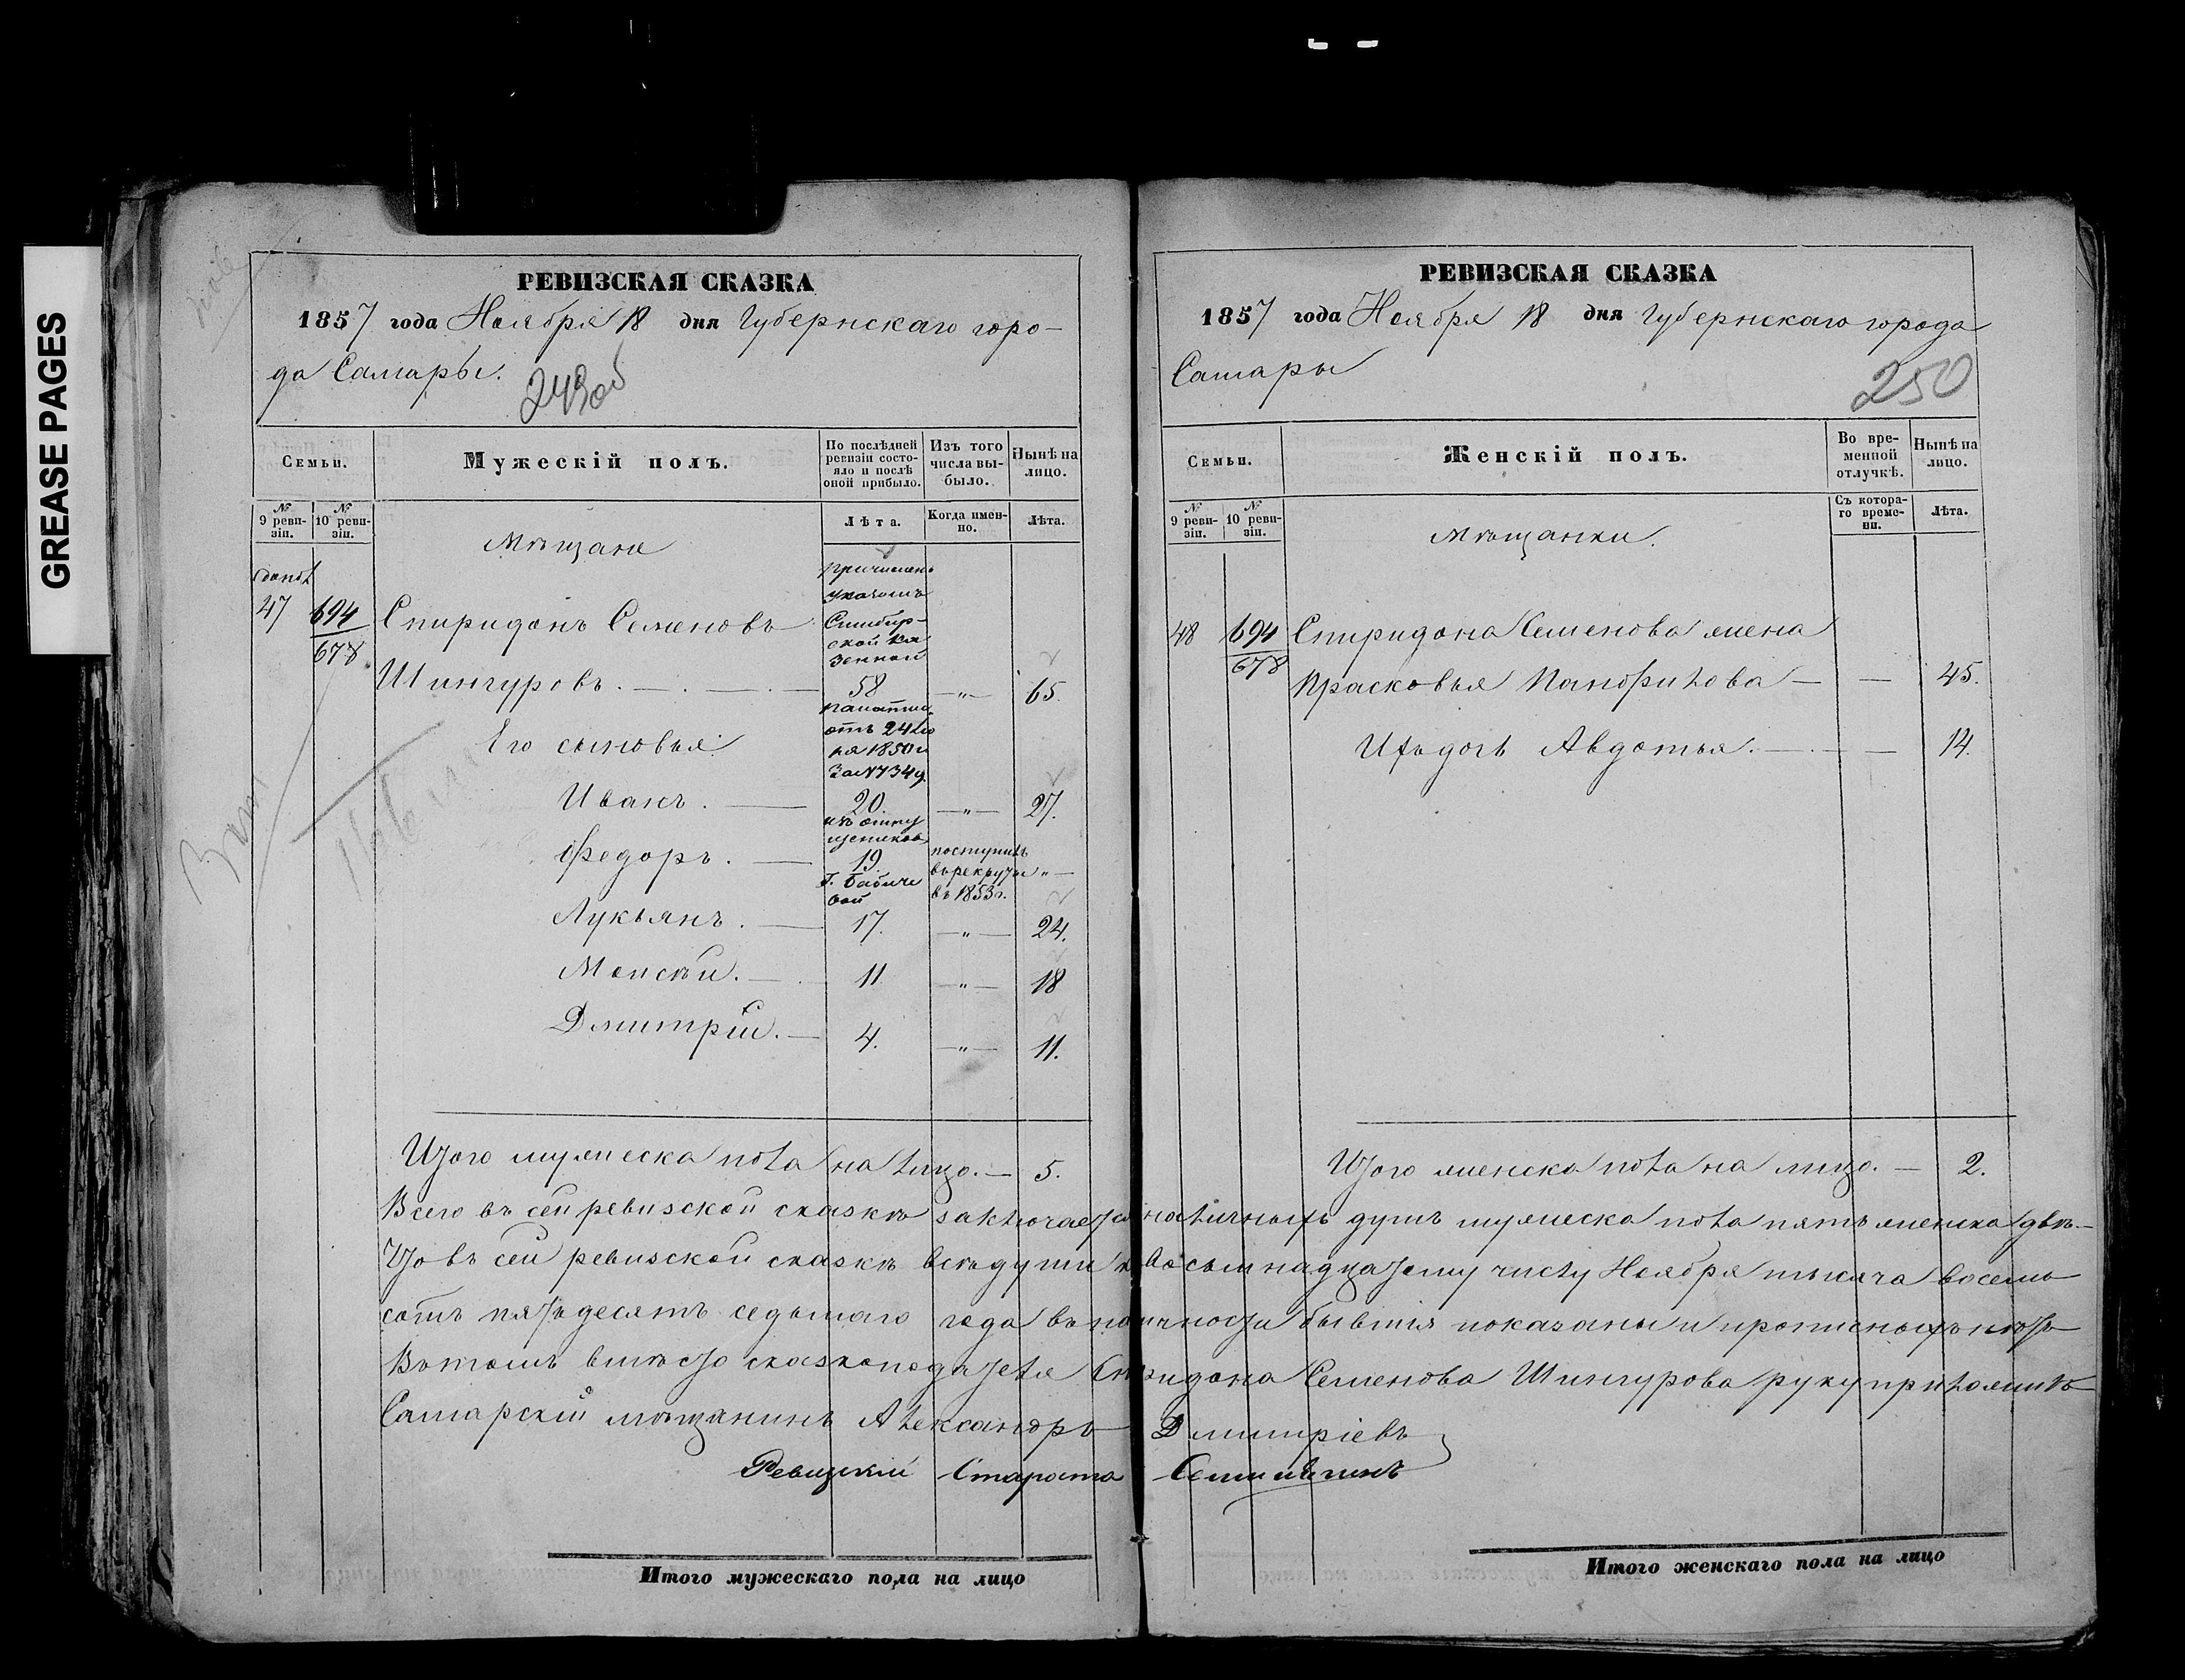 GREASE PAGES
РЕВИЗСКАЯ СКАЗКА
1857 года Ноября 18 дня Губернскаго горо-
да Самары.
249об
Семьи.
Мужескій полъ.
По послѣдней ревизіи состояло и послѣ оной прибыло.
Изъ того числа выбыло.
Нынѣ на лицо.
№ 9 ревизіи.
№ 10 ревизіи.
Лѣта.
Когда именно.
Лѣта.
Мѣщане
причисленъ
указомъ
Симбир-
ской Ка
зенной
палаты
отъ 24
1850
за № 734
47 694 Спиридонъ Семеновъ
678
Шингуровъ. 58 —"— 65.
Его сыновья
Иванъ. 20. —"— 27.
изъ отпу
щенников
Г. Бабиче
вой
Федоръ. 19. поступилъ
въ рекруты "—
въ 1853 г.
Лукьянъ. 17. —"— 24.
Моисѣй. 11 —"— 18
Дмитрій. 4. —"— 11.
Итого мужеска пола на лицо. — 5.
РЕВИЗСКАЯ СКАЗКА
1857 года Ноября 18 дня Губернскаго города
Самары
250
Семьи.
Женскій полъ.
Во временной отлучкѣ.
Нынѣ на лицо.
№ 9 ревизіи.
№ 10 ревизіи.
Съ котораго времени.
Лѣта.
Мѣщанки.
48 694 Спиридона Семенова жена
678
Прасковья Панфилова — — 45.
Ихъ дочь Авдотья. — — 14.
Итого женска пола на лицо. — 2.
Всего въ сей ревизской сказкѣ заключается наличныхъ душъ мужеска пола пять женска двѣ.—
Что въ сей ревизской сказкѣ всѣ души къ восьмнадцатому числу Ноября тысяча восемь
сотъ пятьдесятъ седьмаго года въ наличности бывшія показаны и прописныхъ нѣтъ
Въ томъ вмѣсто сказкоподателя Спиридона Семенова Шингурова руку приложилъ
Самарскій мѣщанинъ Александръ Дмитріевъ
Ревизскій Староста
Итого мужескаго пола на лицо
Итого женскаго пола на лицо